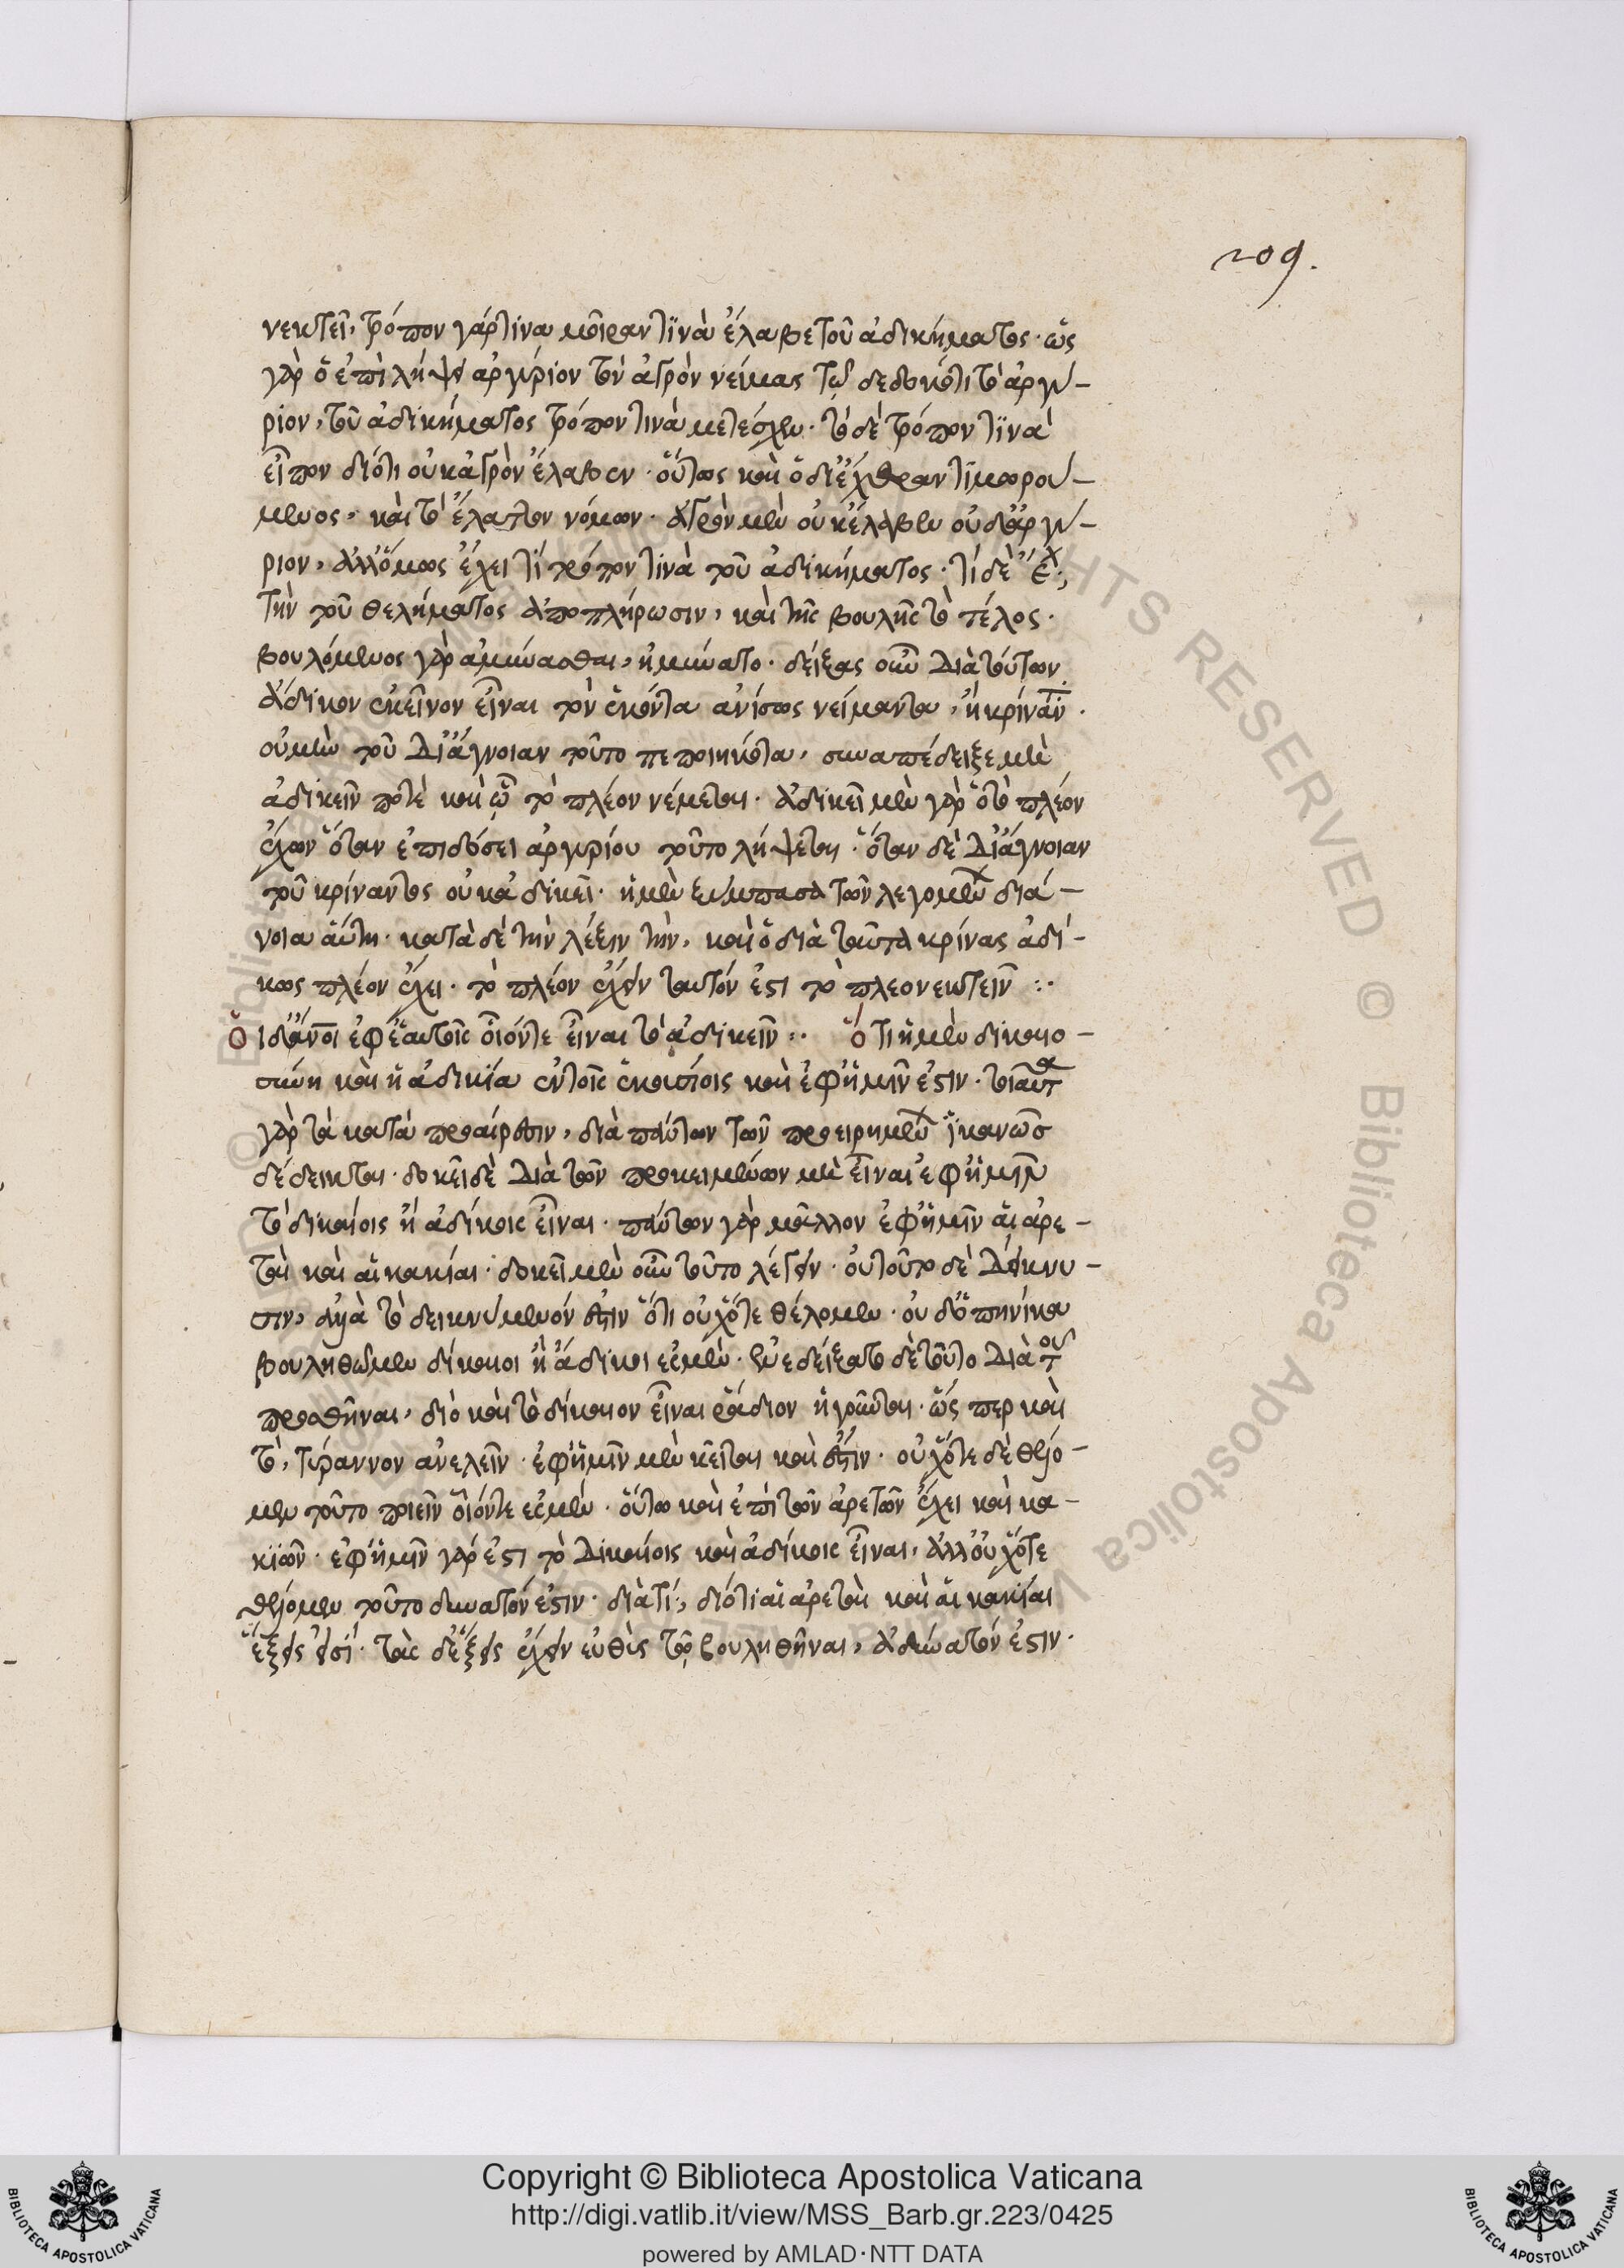 209.
νεκτεῖ, τρόπον γάρ τινα μοῖραν τινὰ ἔλαβε τοῦ ἀδικήματος· ὡς
γὰρ ὁ ἐπὶ λήψει ἀργύριον τὸν ἀγρὸν νείμας τῷ δεδωκότι τὸ ἀργύ-
ριον, τοῦ ἀδικήματος τρόπον τινὰ μετέσχεν· τὸ δὲ τρόπον τινὰ
εἶπον διότι οὐκ ἀγρὸν ἔλαβεν· οὕτως καὶ ὁ δι' ἔχθραν τιμωρού-
μενος, καὶ τὸ ἔλαττον νέμων· ἀγρὸν μὲν οὐκ ἔλαβεν οὐδ' ἀργύ-
ριον, ἀλλ' ὅμως ἔχει τί τρόπον τινὰ τοῦ ἀδικήματος· τί δὲ ἔχ;
τὴν τοῦ θελήματος ἀποπλήρωσιν, καὶ τῆς βουλῆς τὸ τέλος·
βουλόμενος γὰρ ἀμύνασθαι, ἠμύνατο· δείξας οὖν διὰ τούτων
ἄδικον ἐκεῖνον εἶναι τὸν ἑκόντα ἀνίσως νείμαντα, ἢ κρίναν·
οὐ μὴν τοῦ δι' ἄγνοιαν τοῦτο πεποιηκότα, συναπέδειξε μὴ
ἀδικεῖν ποτὲ καὶ ᾧ τὸ πλέον νέμεται· ἀδικεῖ μὲν γὰρ ὁ τὸ πλέον
ἔχων ὅταν ἐπιδόσει ἀργυρίου τοῦτο λήψεται· ὅταν δὲ δι' ἄγνοιαν
τοῦ κρίναντος οὐκ ἀδικεῖ· ἡ μὲν ξύμπασα τῶν λεγομέν διά-
νοια αὕτη· κατὰ δὲ τὴν λέξιν τὴν, καὶ ὁ διὰ ταῦτα κρίνας ἀδί-
κως πλέον ἔχει· τὸ πλέον ἔχειν ταυτόν ἐστι τὸ πλεονεκτεῖν :·
Οἱ δ' ἄνοι ἐφ' ἑαυτοῖς οἴονται εἶναι τὸ ἀδικεῖν :· Ὅτι ἡ μὲν δικαιο-
σύνη καὶ ἡ ἀδικία ἐν τοῖς ἑκουσίοις καὶ ἐφ' ἡμῖν ἐστιν· τοιαῦτα
γὰρ τὰ κατὰ προαίρεσιν, διὰ πάντων τῶν προειρημέν ἱκανῶς
δέδεικται· δοκεῖ δὲ διὰ τῶν προκειμένων μὴ εἶναι ἐφ' ἡμῖν
τὸ δικαίοις ἢ ἀδίκοις εἶναι· πάντων γὰρ μᾶλλον ἐφ' ἡμῖν αἱ ἀρε-
ταὶ καὶ αἱ κακίαι· δοκεῖ μὲν οὖν τοῦτο λέγειν· οὐ τοῦτο δὲ δείκνυ-
σιν, ἀλλὰ τὸ δεικνύμενόν ἐστιν ὅτι οὐχ ὅτε θέλομεν· οὐδ' ὁπηνίκα
βουληθῶμεν δίκαιοι ἢ ἄδικοι ἐσμὲν· ἐνεδείξατο δὲ τοῦτο διὰ τοῦ
προσθῆναι, διὸ καὶ τὸ δίκαιον εἶναι ῥάδιον ἡγοῦνται· ὥσπερ καὶ
τὸ, τύραννον ἀνελεῖν· ἐφ' ἡμῖν μὲν κεῖται καὶ ἔστιν· οὐχ ὅτε δὲ θέλο-
μεν τοῦτο ποιεῖν οἷόν τε ἐσμέν· οὕτω καὶ ἐπὶ τῶν ἀρετῶν ἔχει καὶ κα-
κιῶν· ἐφ' ἡμῖν γάρ ἐστι τὸ δικαίοις καὶ ἀδίκοις εἶναι, ἀλλ' οὐχ ὅτε
θέλομεν τοῦτο δυνατόν ἐστιν· διὰ τί;, διότι αἱ ἀρεταὶ καὶ αἱ κακίαι
ἕξεις εἰσί· τὰς δ' ἕξεις ἔχειν εὐθὺς τῷ βουληθῆναι, ἀδύνατόν ἐστιν·
Copyright © Biblioteca Apostolica Vaticana
http://digi.vatlib.it/view/MSS_Barb.gr.223/0425
powered by AMLAD·NTT DATA